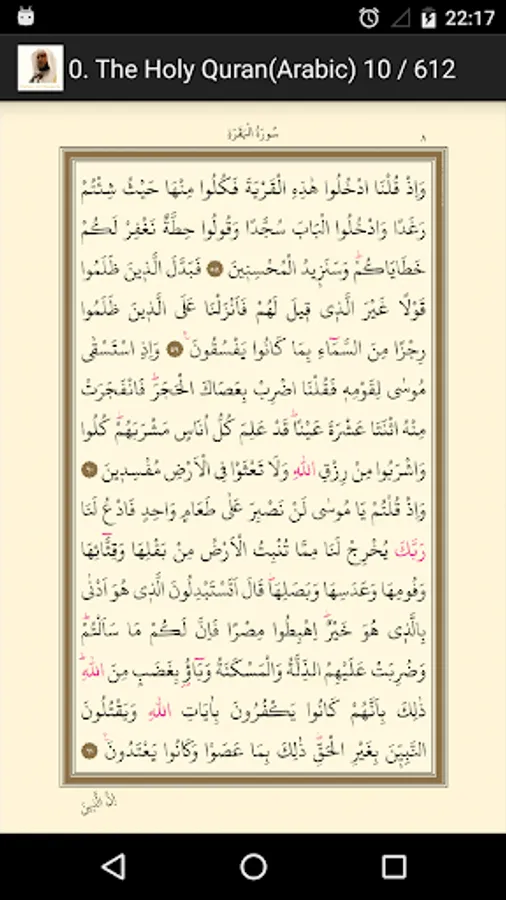 22:17
0. The Holy Quran(Arabic) 10 / 612
سُورَةُ الْبَقَرَةِ
٨
وَاِذْ قُلْنَا ادْخُلُوا هٰذِهِ الْقَرْيَةَ فَكُلُوا مِنْهَا حَيْثُ شِئْتُمْ
رَغَدًا وَادْخُلُوا الْبَابَ سُجَّدًا وَقُولُوا حِطَّةٌ نَغْفِرْ لَكُمْ
خَطَايَاكُمْۜ وَسَنَزِيدُ الْمُحْسِنِينَ ﴿٥٨﴾ فَبَدَّلَ الَّذِينَ ظَلَمُوا
قَوْلًا غَيْرَ الَّذِى قِيلَ لَهُمْ فَاَنْزَلْنَا عَلَى الَّذِينَ ظَلَمُوا
رِجْزًا مِنَ السَّمَٓاءِ بِمَا كَانُوا يَفْسُقُونَ۟ ﴿٥٩﴾ وَاِذِ اسْتَسْقٰى
مُوسٰى لِقَوْمِهٖ فَقُلْنَا اضْرِبْ بِعَصَاكَ الْحَجَرَۜ فَانْفَجَرَتْ
مِنْهُ اثْنَتَا عَشْرَةَ عَيْنًاۜ قَدْ عَلِمَ كُلُّ اُنَاسٍ مَشْرَبَهُمْۜ كُلُوا
وَاشْرَبُوا مِنْ رِزْقِ اللّٰهِ وَلَا تَعْثَوْا فِى الْاَرْضِ مُفْسِدِينَ ﴿٦٠﴾
وَاِذْ قُلْتُمْ يَا مُوسٰى لَنْ نَصْبِرَ عَلٰى طَعَامٍ وَاحِدٍ فَادْعُ لَنَا
رَبَّكَ يُخْرِجْ لَنَا مِمَّا تُنْبِتُ الْاَرْضُ مِنْ بَقْلِهَا وَقِثَّٓائِهَا
وَفُومِهَا وَعَدَسِهَا وَبَصَلِهَاۜ قَالَ اَتَسْتَبْدِلُونَ الَّذِى هُوَ اَدْنٰى
بِالَّذِى هُوَ خَيْرٌۜ اِهْبِطُوا مِصْرًا فَاِنَّ لَكُمْ مَا سَاَلْتُمْۜ
وَضُرِبَتْ عَلَيْهِمُ الذِّلَّةُ وَالْمَسْكَنَةُ وَبَٓاؤُ۫ بِغَضَبٍ مِنَ اللّٰهِۜ
ذٰلِكَ بِاَنَّهُمْ كَانُوا يَكْفُرُونَ بِاٰيَاتِ اللّٰهِ وَيَقْتُلُونَ
النَّبِيّ۪نَ بِغَيْرِ الْحَقِّۜ ذٰلِكَ بِمَا عَصَوْا وَكَانُوا يَعْتَدُونَ۟ ﴿٦١﴾
اِنَّ الَّذِينَ